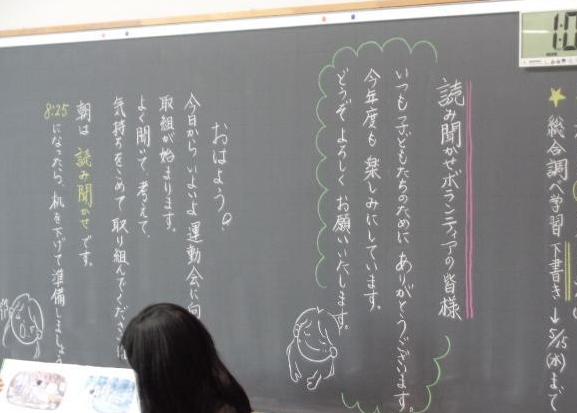 総合調べ学習 下書き→5/15(水)まで
読み聞かせボランティアの皆様
いつも子どもたちのために ありがとうございます。
今年度も楽しみにしています。
どうぞよろしくお願いいたします。
おはよう。
今日からいよいよ運動会に向
取組が始まります。
よく聞いて、考えて、
気持ちをこめて取り組んでくださ
朝は 読み聞かせです。
8:25になったら、机を下げて準備しましょ